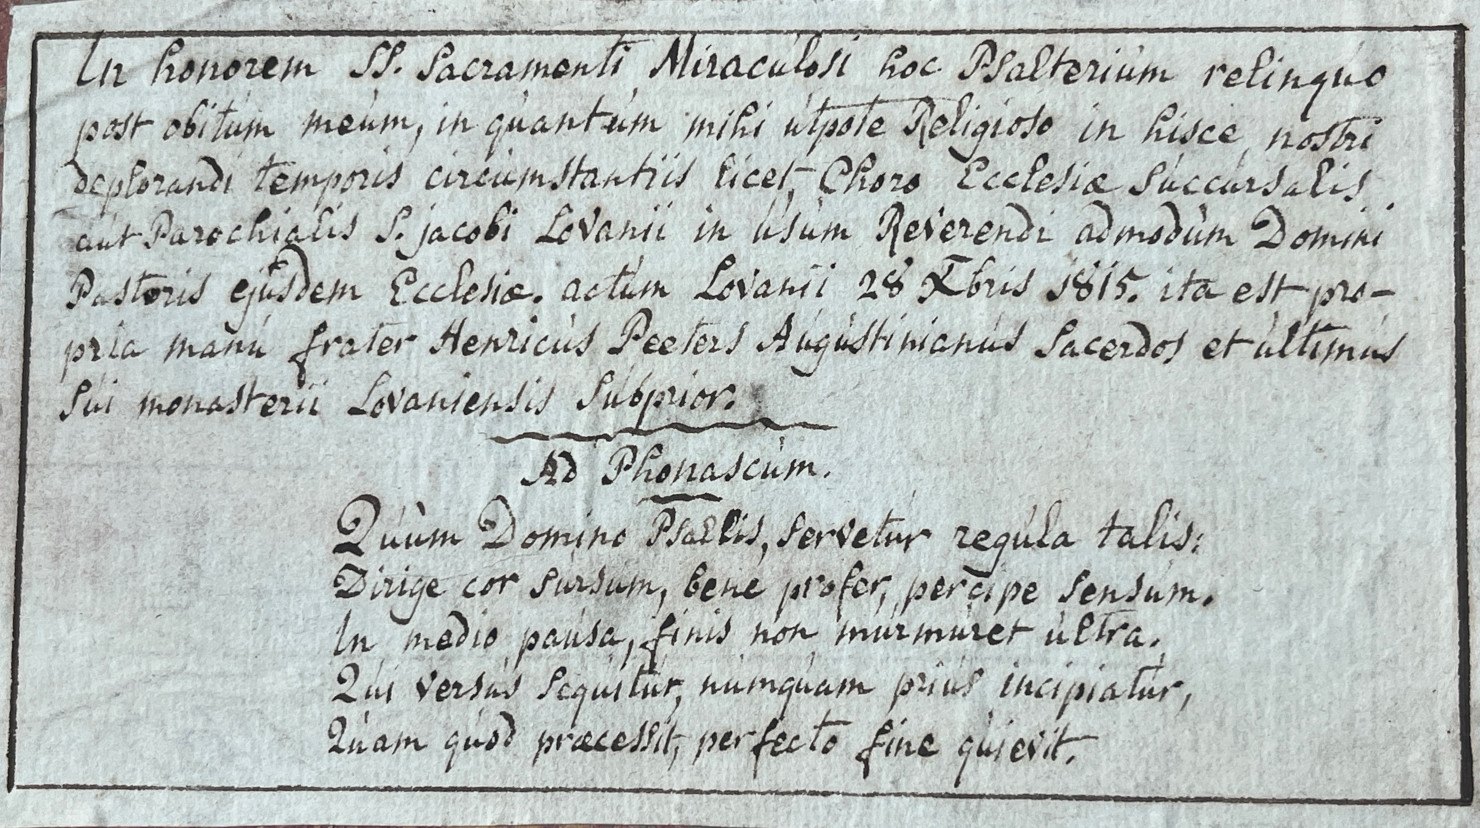 In honorem SS. Sacramenti Miraculosi hoc Psalterium relinquo
post obitum meum, in quantum mihi utpote Religioso in hisce nostri
deplorandi temporis circumstantiis licet, Choro Ecclesiæ Succursalis
aut Parochialis S. jacobi Lovanii in usum Reverendi admodum Domini
Pastoris ejusdem Ecclesiæ. actum Lovanii 28 Xbris 1815. ita est pro-
pria manu frater Henricus Peeters Augustinianus Sacerdos et ultimus
Sui monasterii Lovaniensis Subprior.
Ad Phonascum.
Quum Domino Psallis, servetur regula talis:
Dirige cor sursum, bene profer, percipe sensum.
In medio pausa, finis non murmuret ultra.
Qui versus sequitur, numquam prius incipiatur,
Quam quod præcessit, perfecto fine quievit.